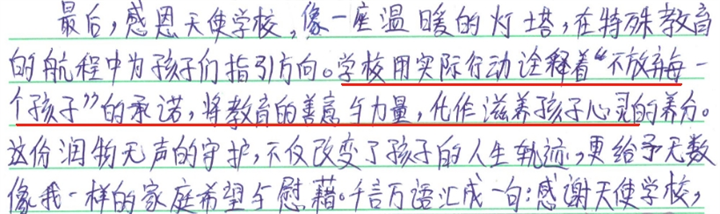 最后，感恩天使学校，像一座温暖的灯塔，在特殊教育
的航程中为孩子们指引方向。学校用实际行动诠释着“不放弃每一
个孩子”的承诺，将教育的善意与力量，化作滋养孩子心灵的养分。
这份润物无声的守护，不仅改变了孩子的人生轨迹，更给予无数
像我一样的家庭希望与慰藉。千言万语汇成一句：感谢天使学校，